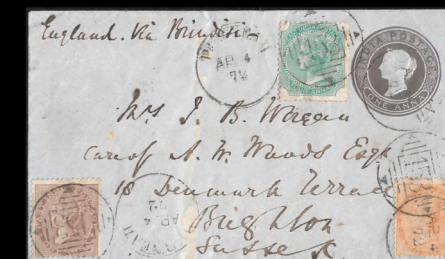 England. Via Brindisi
AP 4
72
INDIA POSTAGE
ONE ANNA
Mrs J. B. Worgan
care of A. W. Woods Esqr
18 Denmark Terrace
AP
4
72
Brighton
Sussex